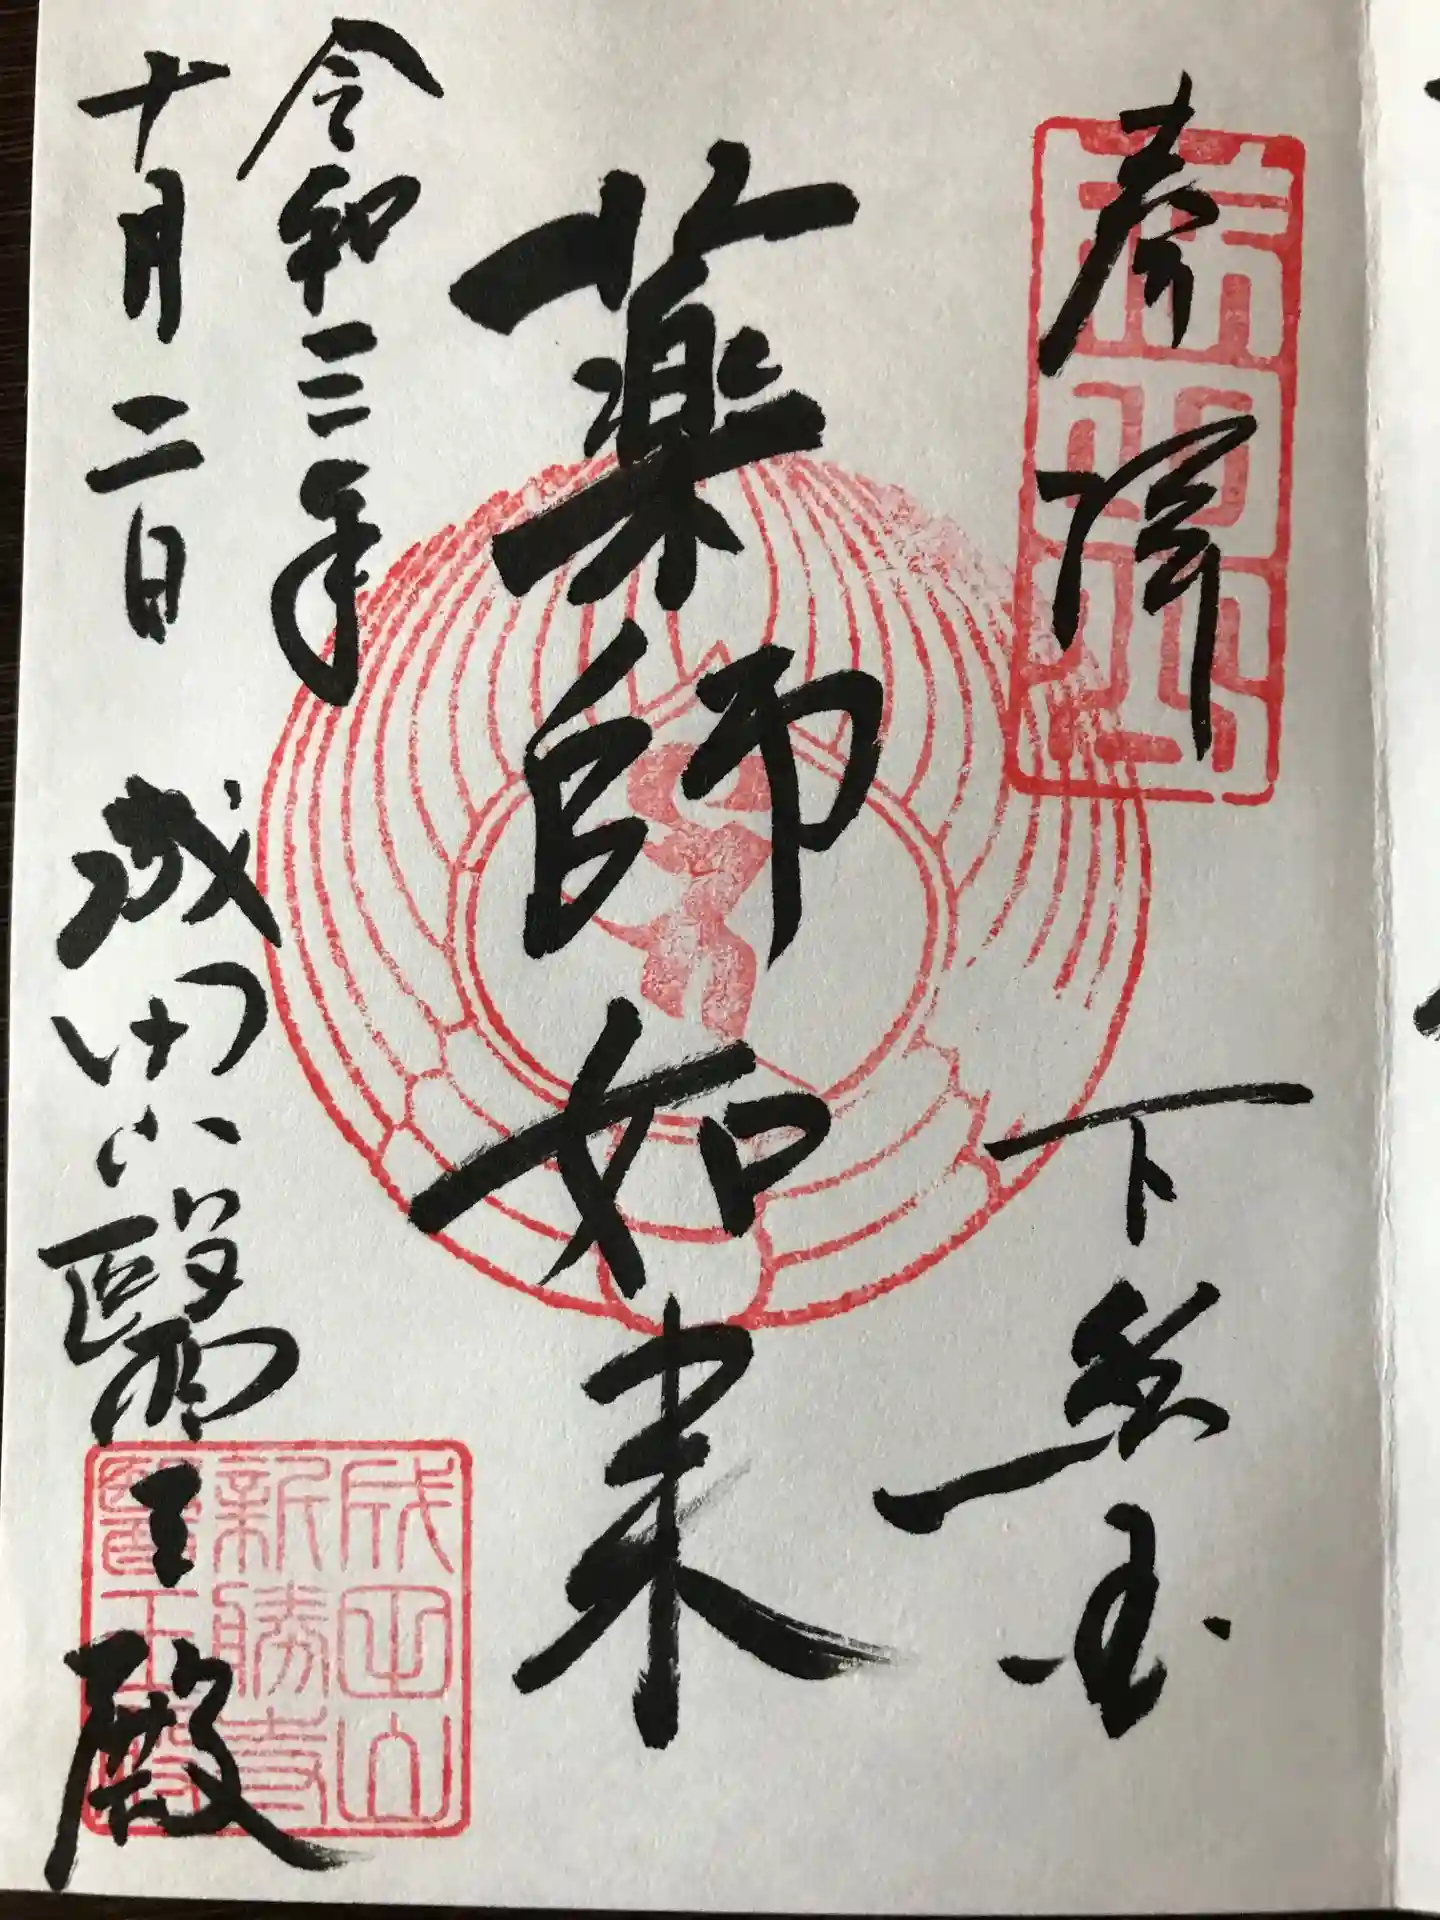 奉拝
下総国
薬師如来
令和三年
十月二日 成田山醫王殿
成田山
新勝寺
醫王殿